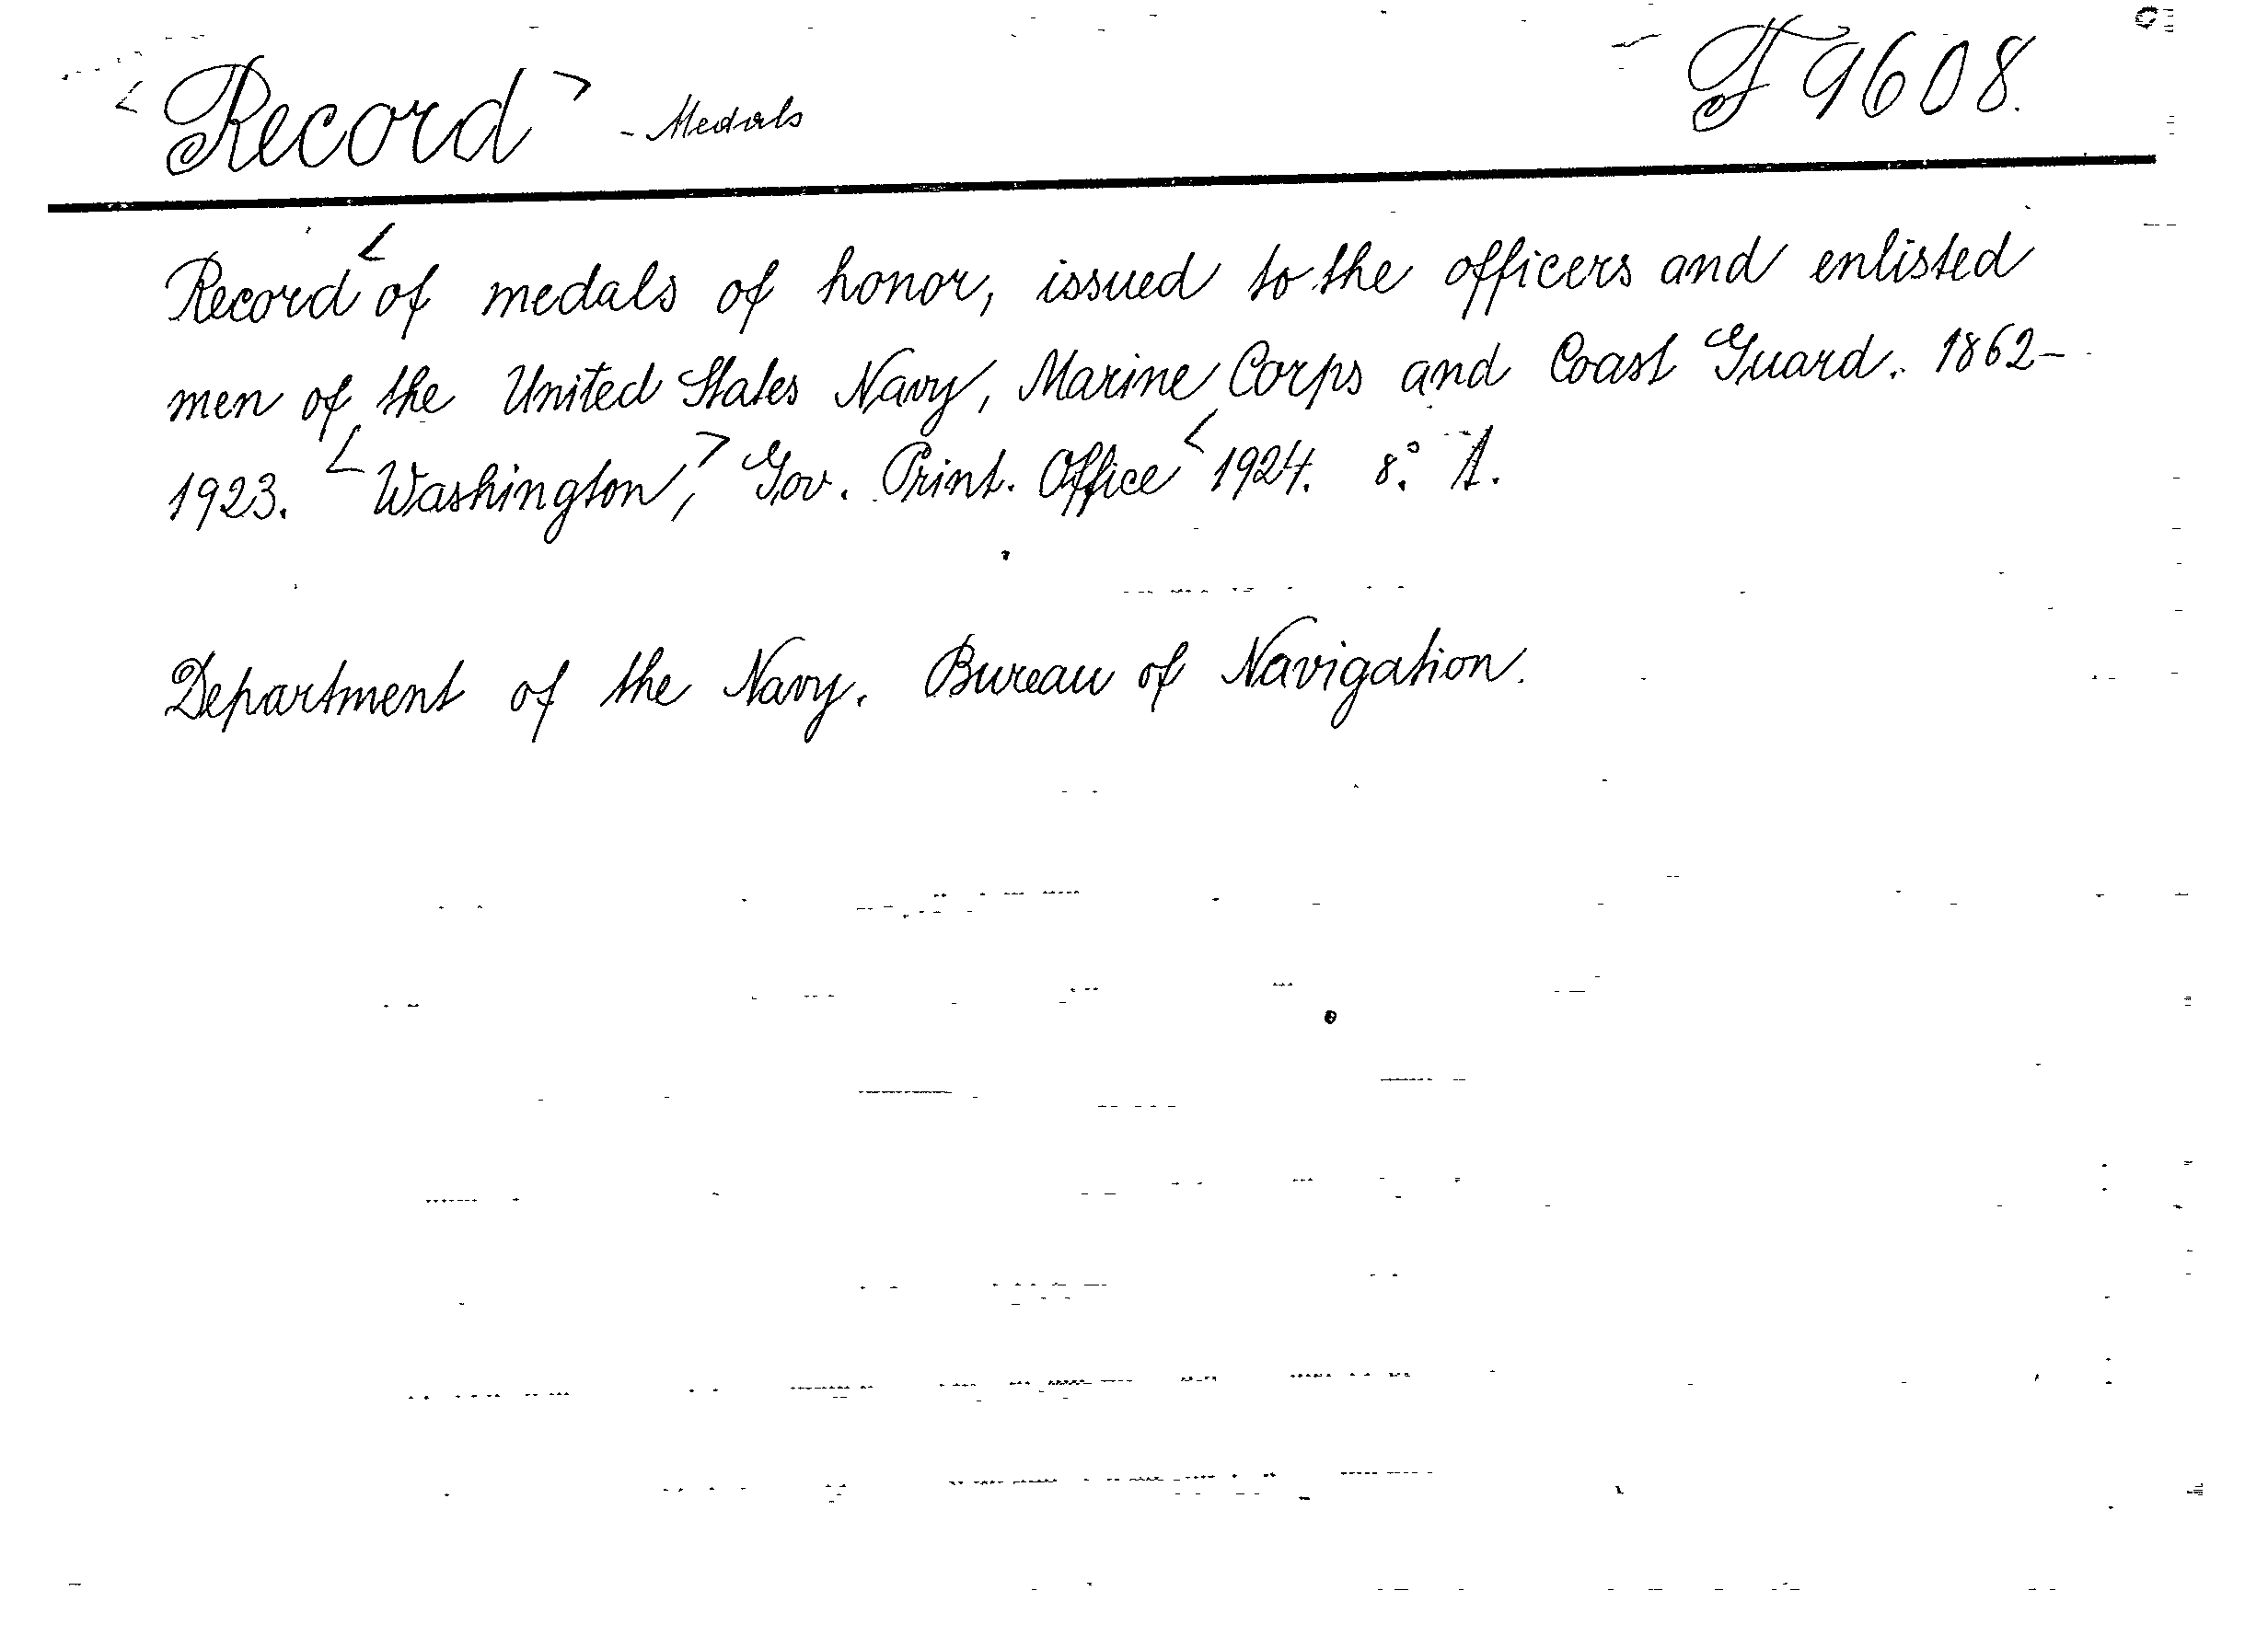 < Record > - Medals F 9608.
Record < of medals of honor, issued to the officers and enlisted
men of the United States Navy, Marine Corps and Coast Guard. 1862-
1923. < Washington, > Gov. Print. Office < 1924. 8.° A.
Department of the Navy. Bureau of Navigation.